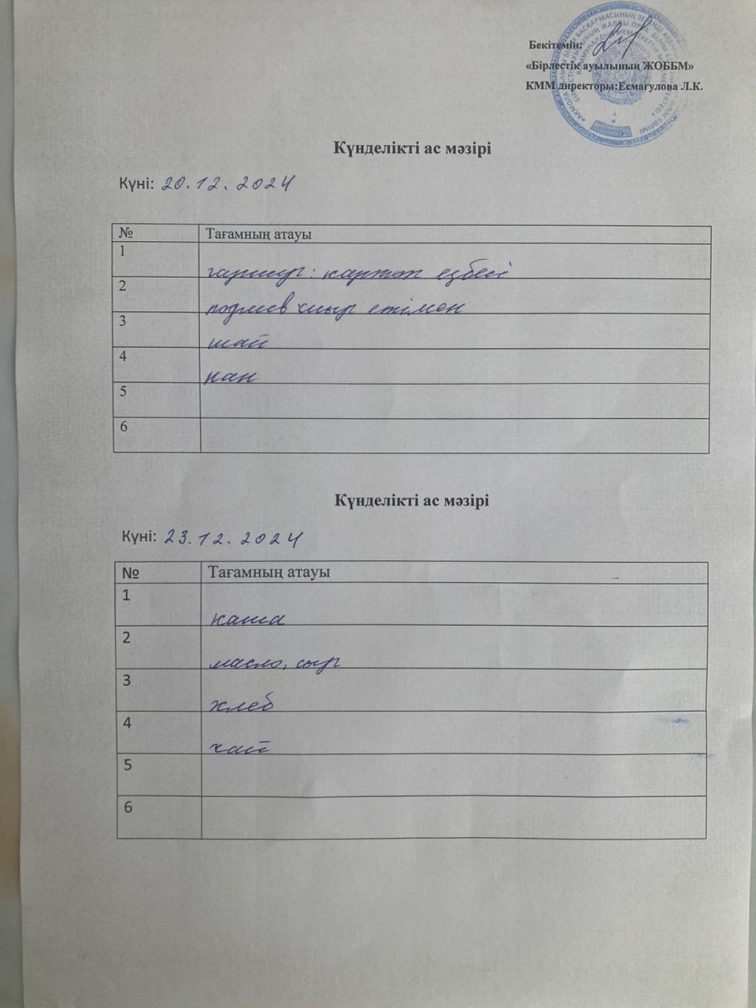 Бекітемін:
«Бірлестік ауылының ЖОББМ»
КММ директоры:Есмагулова Л.К.
Күнделікті ас мәзірі
Күні: 20.12.2024
№ Тағамның атауы
1 гарнир: картоп езбесі
2 подлив сиыр етімен
3 шай
4 нан
5
6
Күнделікті ас мәзірі
Күні: 23.12.2024
№ Тағамның атауы
1 каша
2 масло, сыр
3 хлеб
4 чай
5
6